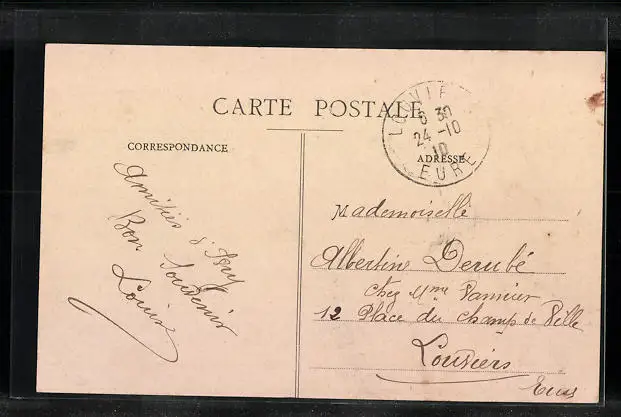 CARTE POSTALE
CORRESPONDANCE
ADRESSE
LOUVIE
6 30
24 -10
10
EURE
Amitiés d'
Bon Souvenir
Louise
Mademoiselle
Albertine Derubé
chez Mme Vannier
12 Place du Champ de Ville
Louviers
Eure